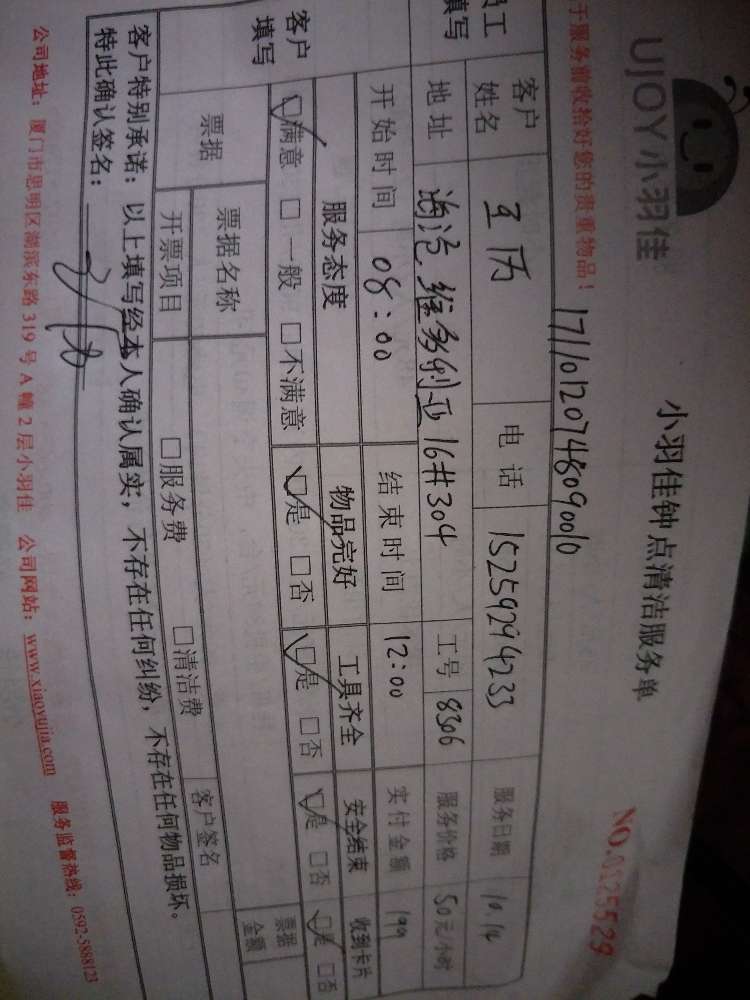 UJOY小羽佳
小羽佳钟点清洁服务单
NO.0125529
于服务前收拾好您的贵重物品！
17110120748090010
员工填写
客户姓名 电话 15259294233 服务日期 10.14
地址 海沧 维多利亚 16#304 工号 8306 服务价格 50元/小时
开始时间 08:00 结束时间 12:00 实付金额 199
客户填写
服务态度 物品完好 工具齐全 安全结束 收到卡片
☑满意 □一般 □不满意 ☑是 □否 ☑是 □否 ☑是 □否 ☑是 □否
票据 票据名称 票据金额
开票项目 □服务费 □清洁费 客户签名
客户特别承诺：以上填写经本人确认属实，不存在任何纠纷，不存在任何物品损坏。
特此确认签名：
公司地址：厦门市思明区湖滨东路319号A幢2层小羽佳 公司网站：www.xiaoyujia.com 服务监督热线：0592-5888123